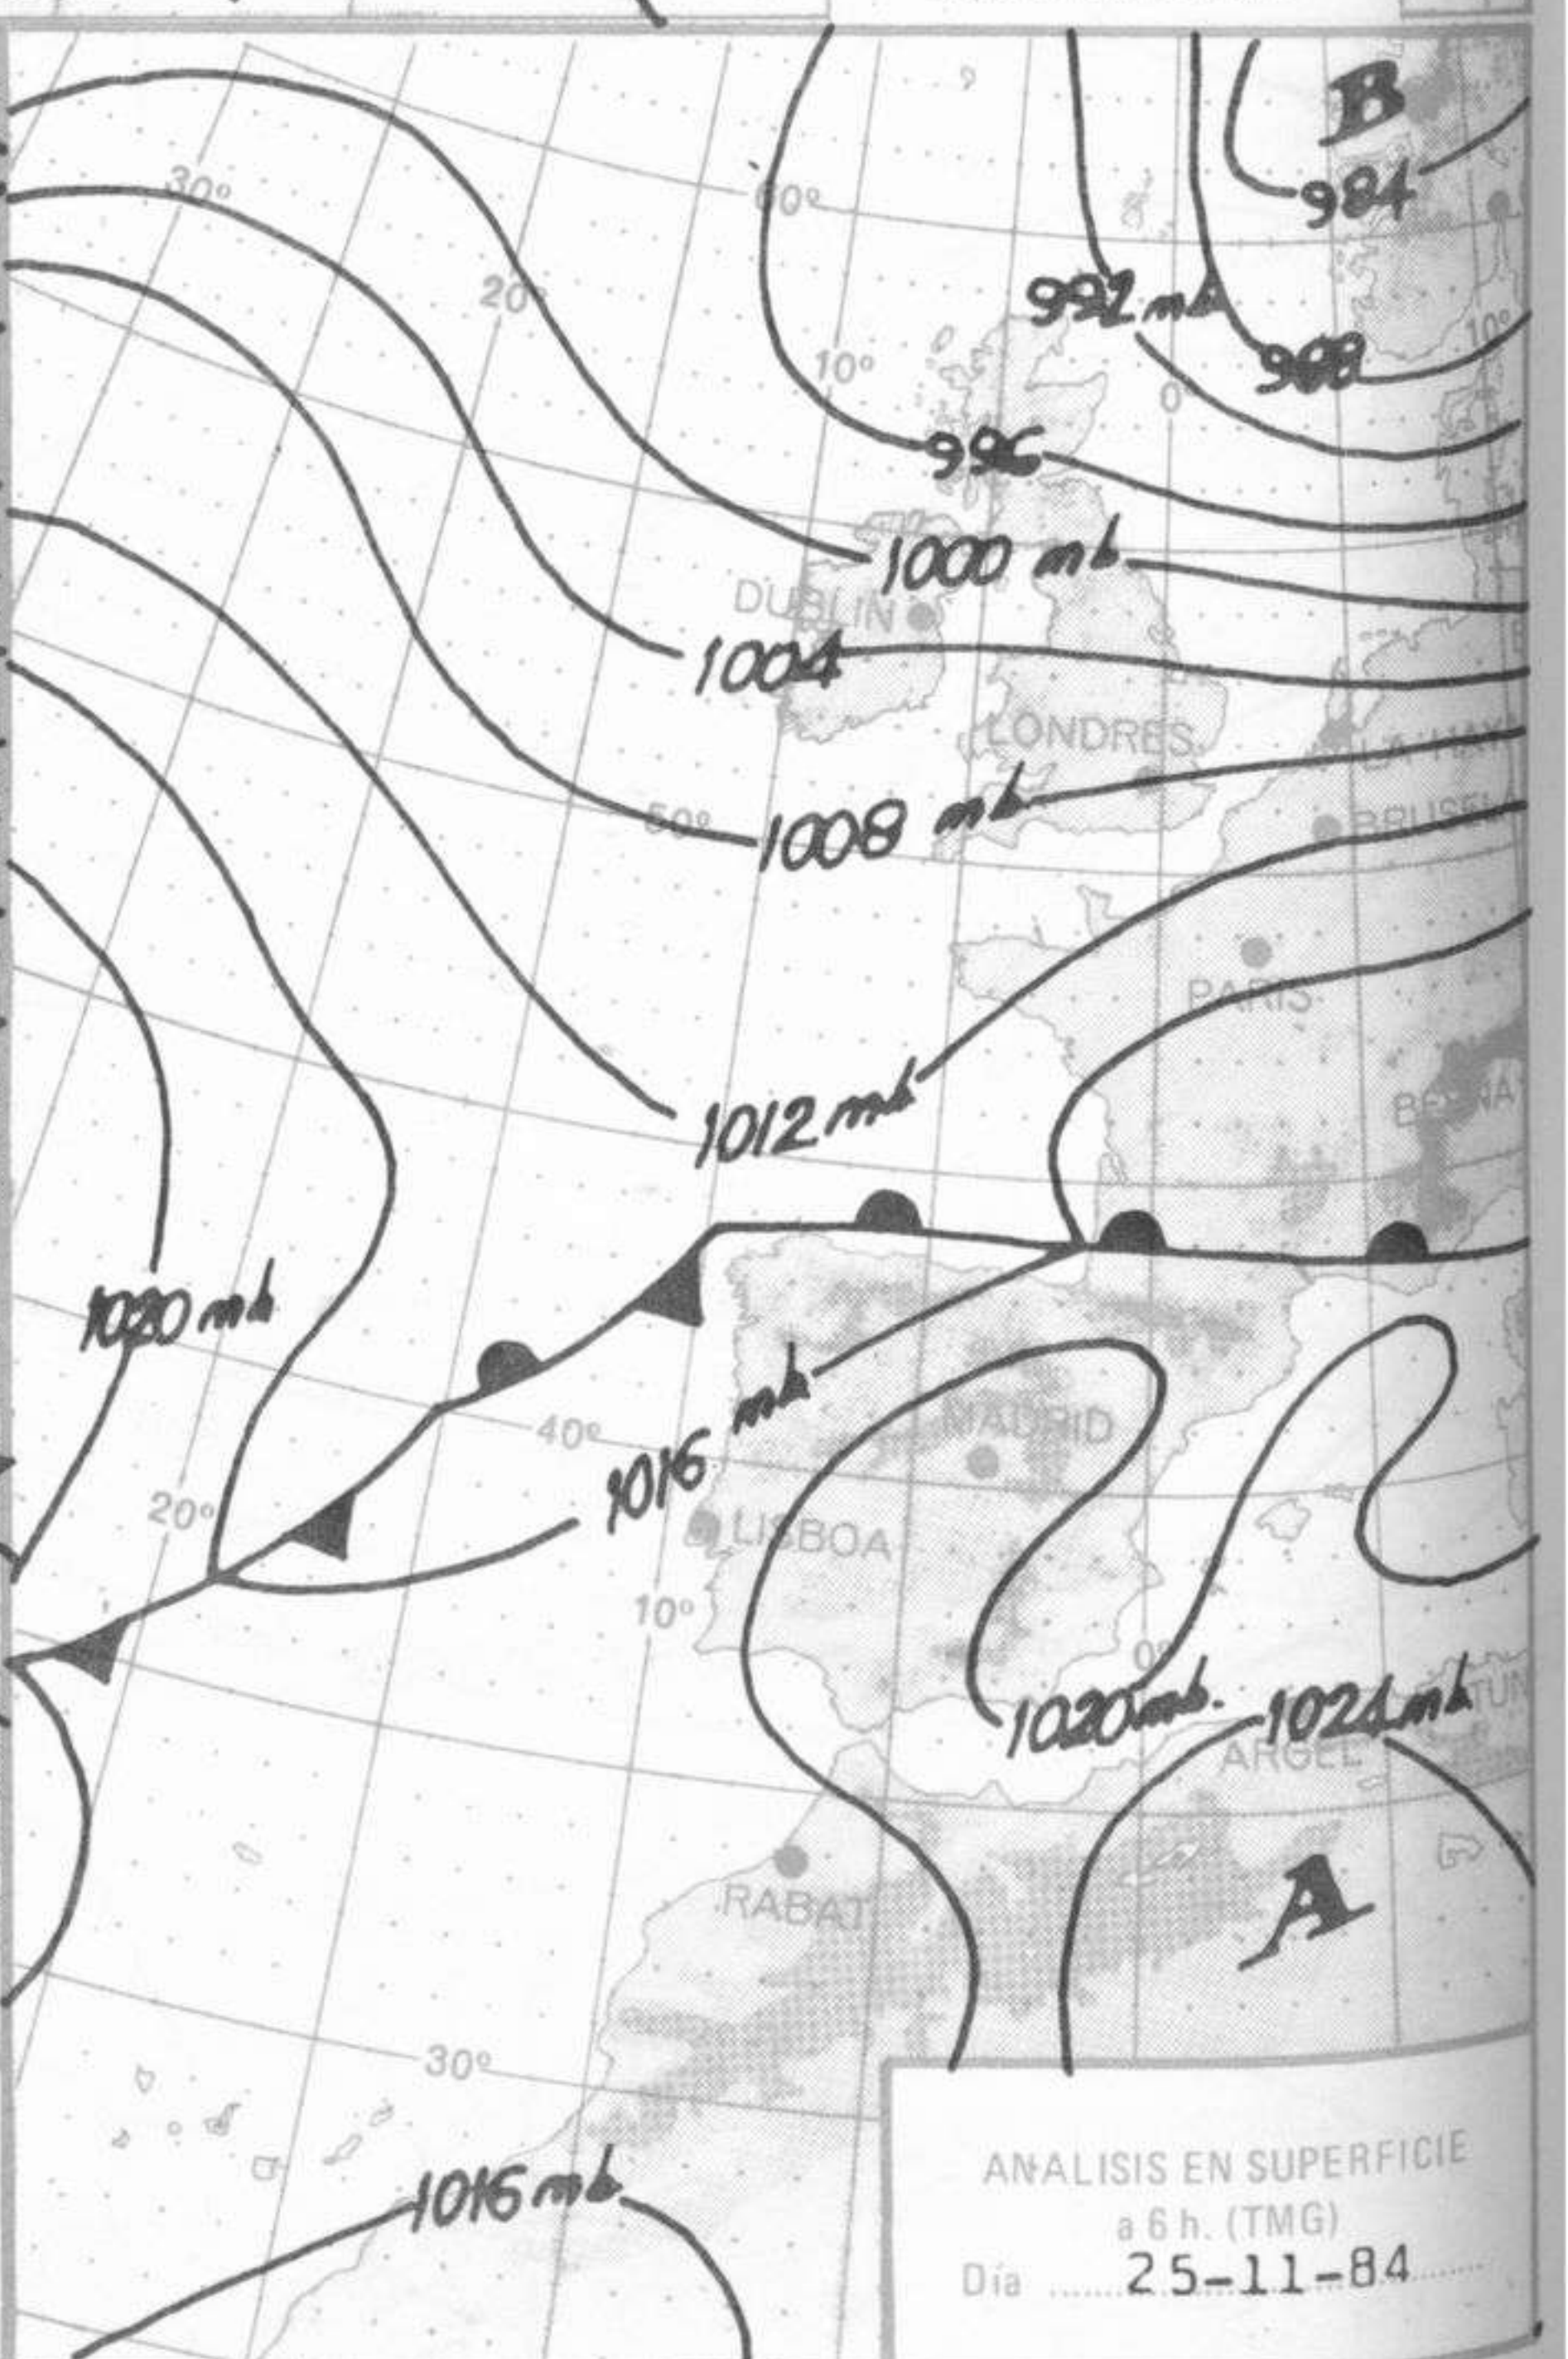 B
984
30º
60º
20º
992 mb
988
10º
10º
0º
996
1000 mb
DUBLIN
1004
LONDRES
LA HAYA
50º
1008 mb
BRUSELA
PARIS
1012 mb
BERNA
1020 mb
1016 mb
40º
MADRID
20º
LISBOA
10º
0º
1020 mb.
1024 mb
TUN
ARGEL
RABAT
A
30º
1016 mb
ANALISIS EN SUPERFICIE
a 6 h. (TMG)
Día 25-11-84